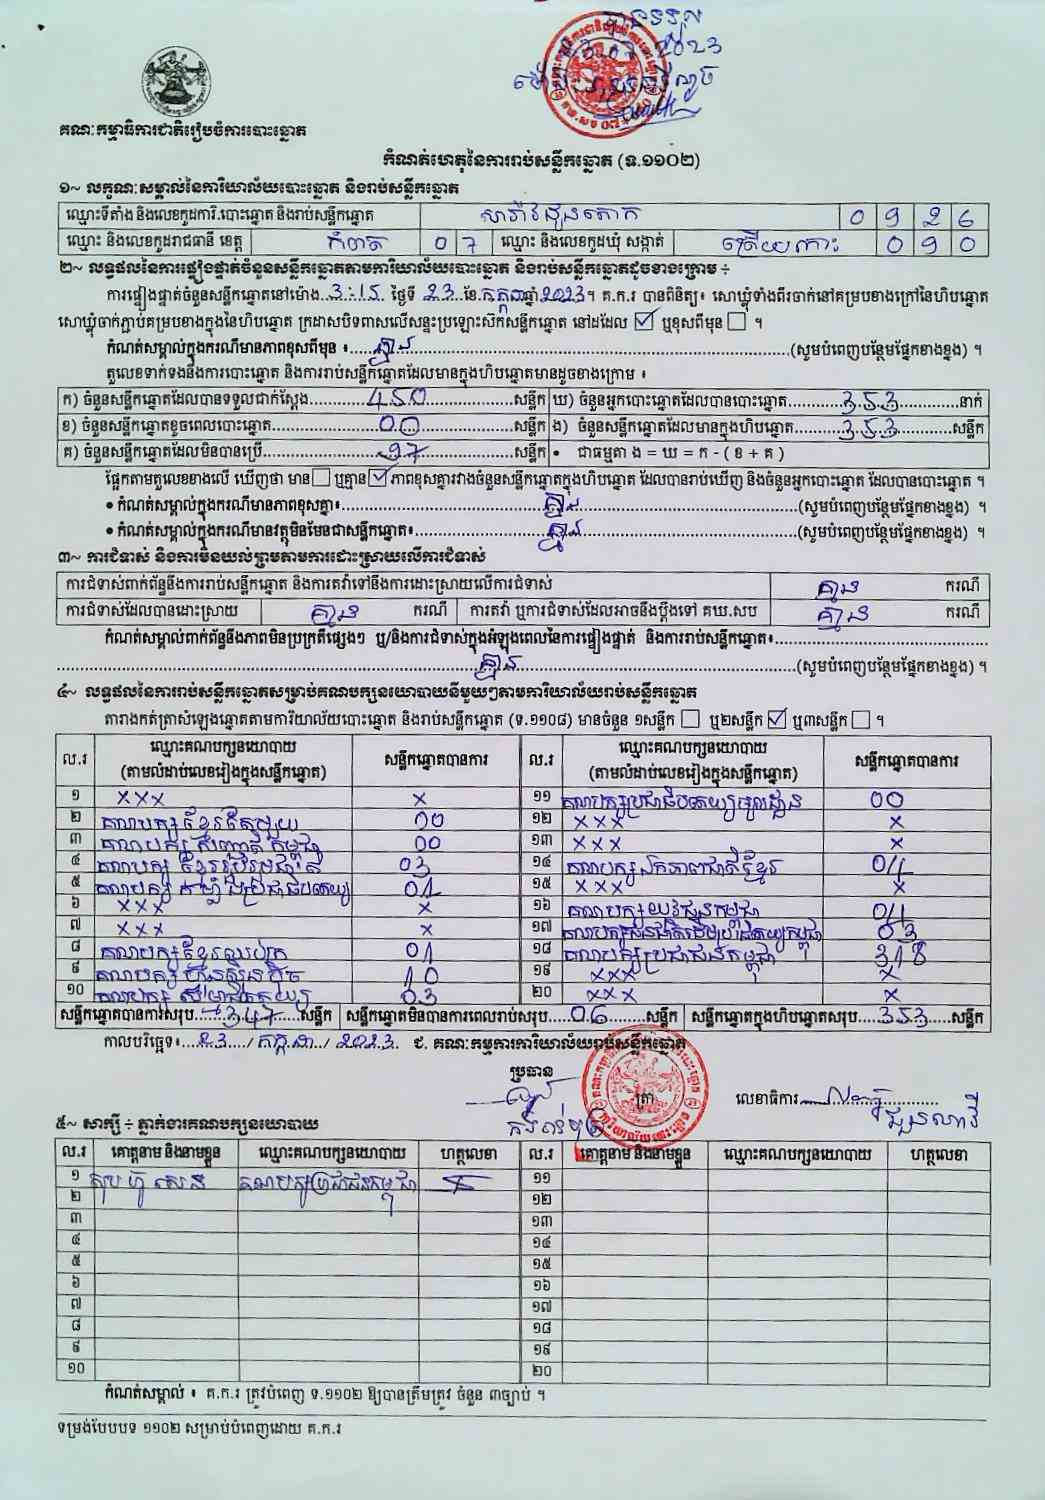 បានទទួល
23.07.2023
គណៈកម្មាធិការជាតិរៀបចំការបោះឆ្នោត
កំណត់ហេតុនៃការរាប់សន្លឹកឆ្នោត (ទ.១១០២)
១~ លក្ខណៈសម្គាល់នៃការិយាល័យបោះឆ្នោត និងរាប់សន្លឹកឆ្នោត
ឈ្មោះទីតាំង និងលេខកូដការិ.បោះឆ្នោត និងរាប់សន្លឹកឆ្នោត 0 9 2 6
ឈ្មោះ និងលេខកូដរាជធានី ខេត្ត កំពត 0 7 ឈ្មោះ និងលេខកូដឃុំ សង្កាត់ ត្រើយកោះ 0 9 0
២~ លទ្ធផលនៃការផ្ទៀងផ្ទាត់ចំនួនសន្លឹកឆ្នោតតាមការិយាល័យបោះឆ្នោត និងរាប់សន្លឹកឆ្នោតដូចខាងក្រោម ÷
ការផ្ទៀងផ្ទាត់ចំនួនសន្លឹកឆ្នោតនៅម៉ោង 3:15 ថ្ងៃទី 23 ខែ កក្កដា ឆ្នាំ 2023 ។ គ.ក.រ បានពិនិត្យ៖ សោឃ្លុំទាំងពីរចាក់នៅគម្របខាងក្រៅនៃហិបឆ្នោត
សោឃ្លុំចាក់ភ្ជាប់គម្របខាងក្នុងនៃហិបឆ្នោត ក្រដាសបិទពាសលើសន្ទះប្រឡោះស៊កសន្លឹកឆ្នោត នៅដដែល ☑ ឬខុសពីមុន ☐ ។
កំណត់សម្គាល់ក្នុងករណីមានភាពខុសពីមុន ៖ គ្មាន (សូមបំពេញបន្ថែមផ្នែកខាងខ្នង) ។
តួលេខទាក់ទងនឹងការបោះឆ្នោត និងការរាប់សន្លឹកឆ្នោតដែលមានក្នុងហិបឆ្នោតមានដូចខាងក្រោម ៖
ក) ចំនួនសន្លឹកឆ្នោតដែលបានទទួលជាក់ស្តែង 450 សន្លឹក ឃ) ចំនួនអ្នកបោះឆ្នោតដែលបានបោះឆ្នោត 353 នាក់
ខ) ចំនួនសន្លឹកឆ្នោតខូចពេលបោះឆ្នោត 00 សន្លឹក ង) ចំនួនសន្លឹកឆ្នោតដែលមានក្នុងហិបឆ្នោត 353 សន្លឹក
គ) ចំនួនសន្លឹកឆ្នោតដែលមិនបានប្រើ 97 សន្លឹក • ជាធម្មតា ង = ឃ = ក - ( ខ + គ )
ផ្អែកតាមតួលេខខាងលើ ឃើញថា មាន ☐ ឬគ្មាន ☑ ភាពខុសគ្នារវាងចំនួនសន្លឹកឆ្នោតក្នុងហិបឆ្នោត ដែលបានរាប់ឃើញ និងចំនួនអ្នកបោះឆ្នោត ដែលបានបោះឆ្នោត ។
• កំណត់សម្គាល់ក្នុងករណីមានភាពខុសគ្នា៖ គ្មាន (សូមបំពេញបន្ថែមផ្នែកខាងខ្នង) ។
• កំណត់សម្គាល់ក្នុងករណីមានវត្ថុមិនមែនជាសន្លឹកឆ្នោត៖ គ្មាន (សូមបំពេញបន្ថែមផ្នែកខាងខ្នង) ។
៣~ ការជំទាស់ និងការមិនយល់ព្រមតាមការដោះស្រាយលើការជំទាស់
ការជំទាស់ពាក់ព័ន្ធនឹងការរាប់សន្លឹកឆ្នោត និងការតវ៉ាទៅនឹងការដោះស្រាយលើការជំទាស់ គ្មាន ករណី
ការជំទាស់ដែលបានដោះស្រាយ គ្មាន ករណី ការតវ៉ា ឬការជំទាស់ដែលអាចនឹងប្តឹងទៅ គឃ.សប គ្មាន ករណី
កំណត់សម្គាល់ពាក់ព័ន្ធនឹងភាពមិនប្រក្រតីផ្សេងៗ ឬ/និងការជំទាស់ក្នុងអំឡុងពេលនៃការផ្ទៀងផ្ទាត់ និងការរាប់សន្លឹកឆ្នោត៖
គ្មាន (សូមបំពេញបន្ថែមផ្នែកខាងខ្នង) ។
៤~ លទ្ធផលនៃការរាប់សន្លឹកឆ្នោតសម្រាប់គណបក្សនយោបាយនីមួយៗតាមការិយាល័យរាប់សន្លឹកឆ្នោត
តារាងកត់ត្រាសំឡេងឆ្នោតតាមការិយាល័យបោះឆ្នោត និងរាប់សន្លឹកឆ្នោត (ទ.១១០៨) មានចំនួន ១សន្លឹក ☐ ឬ២សន្លឹក ☑ ឬ៣សន្លឹក ☐ ។
ល.រ ឈ្មោះគណបក្សនយោបាយ (តាមលំដាប់លេខរៀងក្នុងសន្លឹកឆ្នោត) សន្លឹកឆ្នោតបានការ ល.រ ឈ្មោះគណបក្សនយោបាយ (តាមលំដាប់លេខរៀងក្នុងសន្លឹកឆ្នោត) សន្លឹកឆ្នោតបានការ
១ xxx x ១១ គណបក្សប្រជាធិបតេយ្យមូលដ្ឋាន 00
២ គណបក្សខ្មែរតែមួយ 00 ១២ xxx x
៣ គណបក្សសញ្ជាតិកម្ពុជា 00 ១៣ xxx x
៤ គណបក្សខ្មែររួបរួមជាតិ 03 ១៤ គណបក្សឯកភាពជាតិខ្មែរ 04
៥ គណបក្សកម្លាំងប្រជាធិបតេយ្យ 01 ១៥ xxx x
៦ xxx x ១៦ គណបក្សយុវជនកម្ពុជា 04
៧ xxx x ១៧ 03
៨ គណបក្សខ្មែរឈប់ក្រ 01 ១៨ គណបក្សប្រជាជនកម្ពុជា 318
៩ គណបក្សហ៊្វុនស៊ិនប៉ិច 10 ១៩ xxx x
១០ គណបក្សសំបុកឃ្មុំ 03 ២០ xxx x
សន្លឹកឆ្នោតបានការសរុប 347 សន្លឹក សន្លឹកឆ្នោតមិនបានការពេលរាប់សរុប 06 សន្លឹក សន្លឹកឆ្នោតក្នុងហិបឆ្នោតសរុប 353 សន្លឹក
កាលបរិច្ឆេទ៖ 23 / កក្កដា / 2023 ជ. គណៈកម្មការការិយាល័យរាប់សន្លឹកឆ្នោត
ប្រធាន
ត្រា
លេខាធិការ
៥~ សាក្សី ÷ ភ្នាក់ងារគណបក្សនយោបាយ
ល.រ គោត្តនាម និងនាមខ្លួន ឈ្មោះគណបក្សនយោបាយ ហត្ថលេខា ល.រ គោត្តនាម និងនាមខ្លួន ឈ្មោះគណបក្សនយោបាយ ហត្ថលេខា
១ គណបក្សប្រជាជនកម្ពុជា ១១
២ ១២
៣ ១៣
៤ ១៤
៥ ១៥
៦ ១៦
៧ ១៧
៨ ១៨
៩ ១៩
១០ ២០
កំណត់សម្គាល់ ៖ គ.ក.រ ត្រូវបំពេញ ទ.១១០២ ឱ្យបានត្រឹមត្រូវ ចំនួន ៣ច្បាប់ ។
ទម្រង់បែបបទ ១១០២ សម្រាប់បំពេញដោយ គ.ក.រ